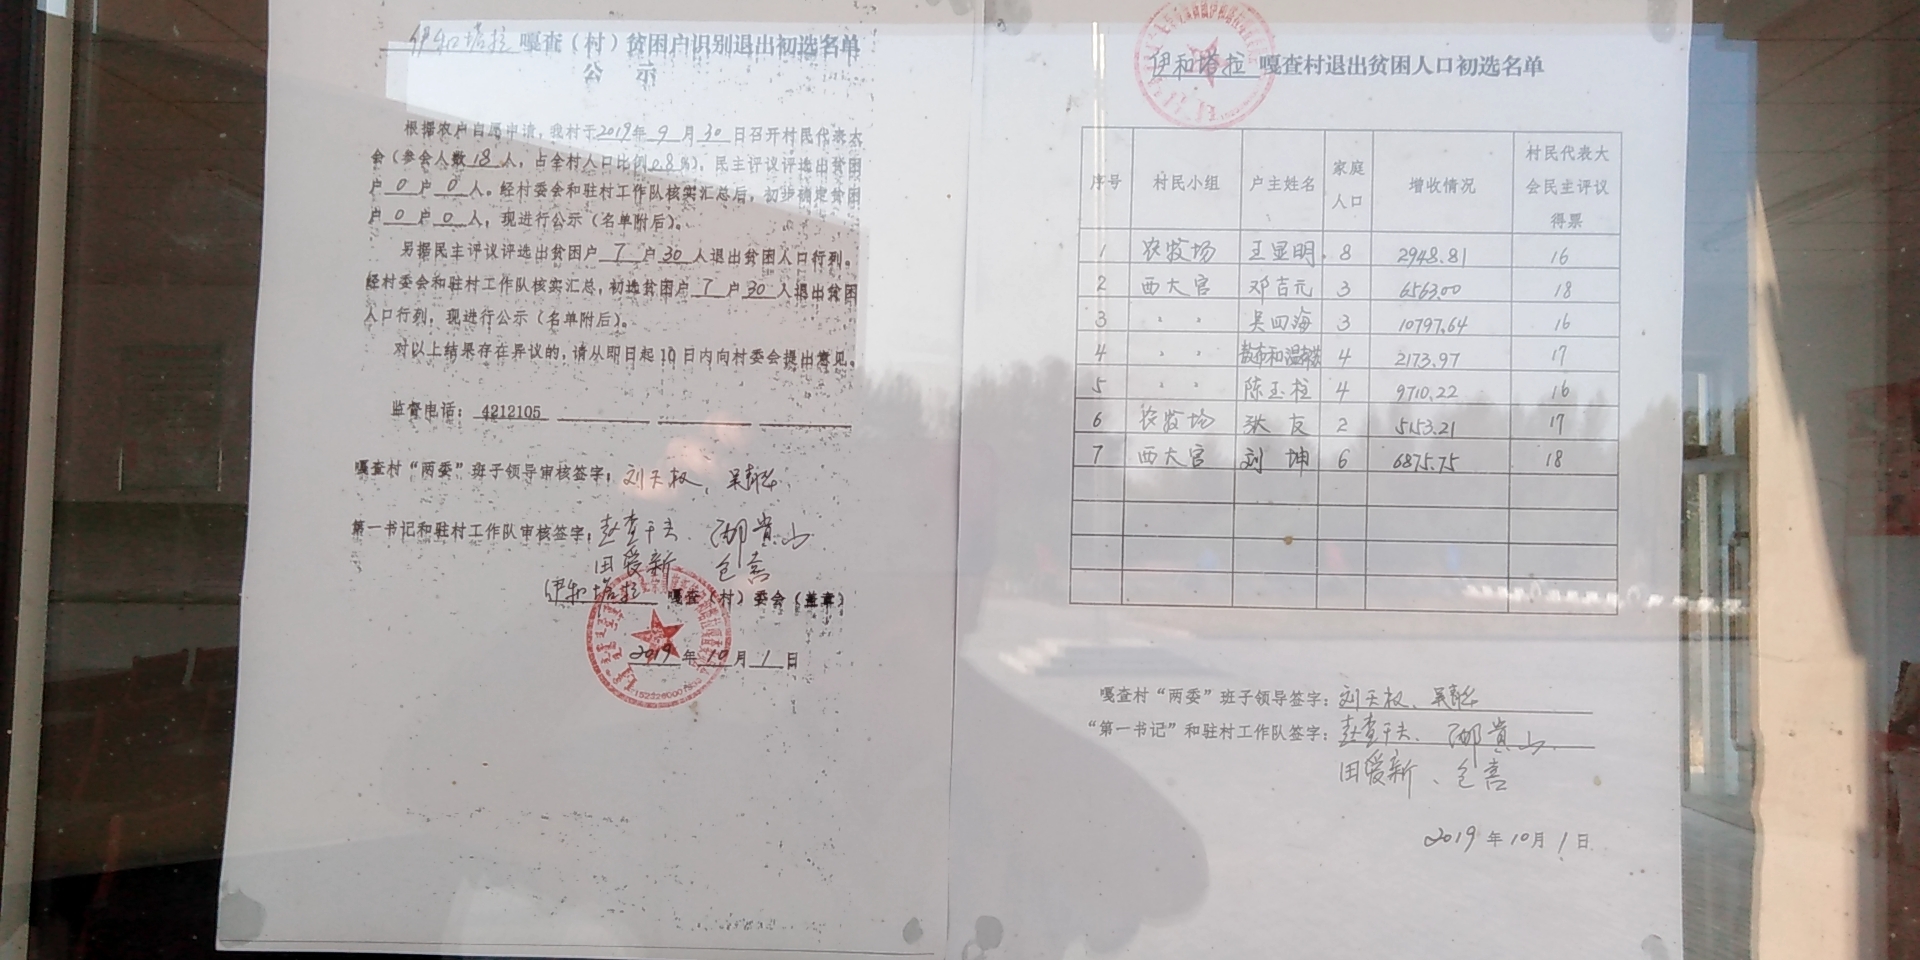 伊和塔拉 嘎查（村）贫困户识别退出初选名单
公 示
根据农户自愿申请，我村于2019年 9 月 30 日召开村民代表大
会（参会人数 18 人，占全村人口比例0.8%），民主评议评选出贫困
户 0 户 0 人。经村委会和驻村工作队核实汇总后，初步确定贫困
户 0 户 0 人，现进行公示（名单附后）。
另据民主评议评选出贫困户 7 户 30 人退出贫困人口行列。
经村委会和驻村工作队核实汇总，初选贫困户 7 户 30 人退出贫困
人口行列，现进行公示（名单附后）。
对以上结果存在异议的，请从即日起 10 日内向村委会提出意见。
监督电话： 4212105
嘎查村“两委”班子领导审核签字：刘天权、吴
第一书记和驻村工作队审核签字：赵查干夫、邴贵山
田爱新 包喜
伊和塔拉 嘎查（村）委会（盖章）
2019 年 10 月 1 日
伊和塔拉 嘎查村退出贫困人口初选名单
序号 村民小组 户主姓名 家庭人口 增收情况 村民代表大会民主评议得票
1 农牧场 王显明 8 2948.81 16
2 西大官 邓吉元 3 6563.00 18
3 〃 〃 吴四海 3 10797.64 16
4 〃 〃 4 2173.97 17
5 〃 〃 陈玉柱 4 9710.22 16
6 农牧场 张友 2 5153.21 17
7 西大官 刘坤 6 6875.75 18
嘎查村“两委”班子领导签字：刘天权、吴
“第一书记”和驻村工作队签字：赵查干夫、邴贵山
田爱新、包喜
2019 年 10 月 1 日